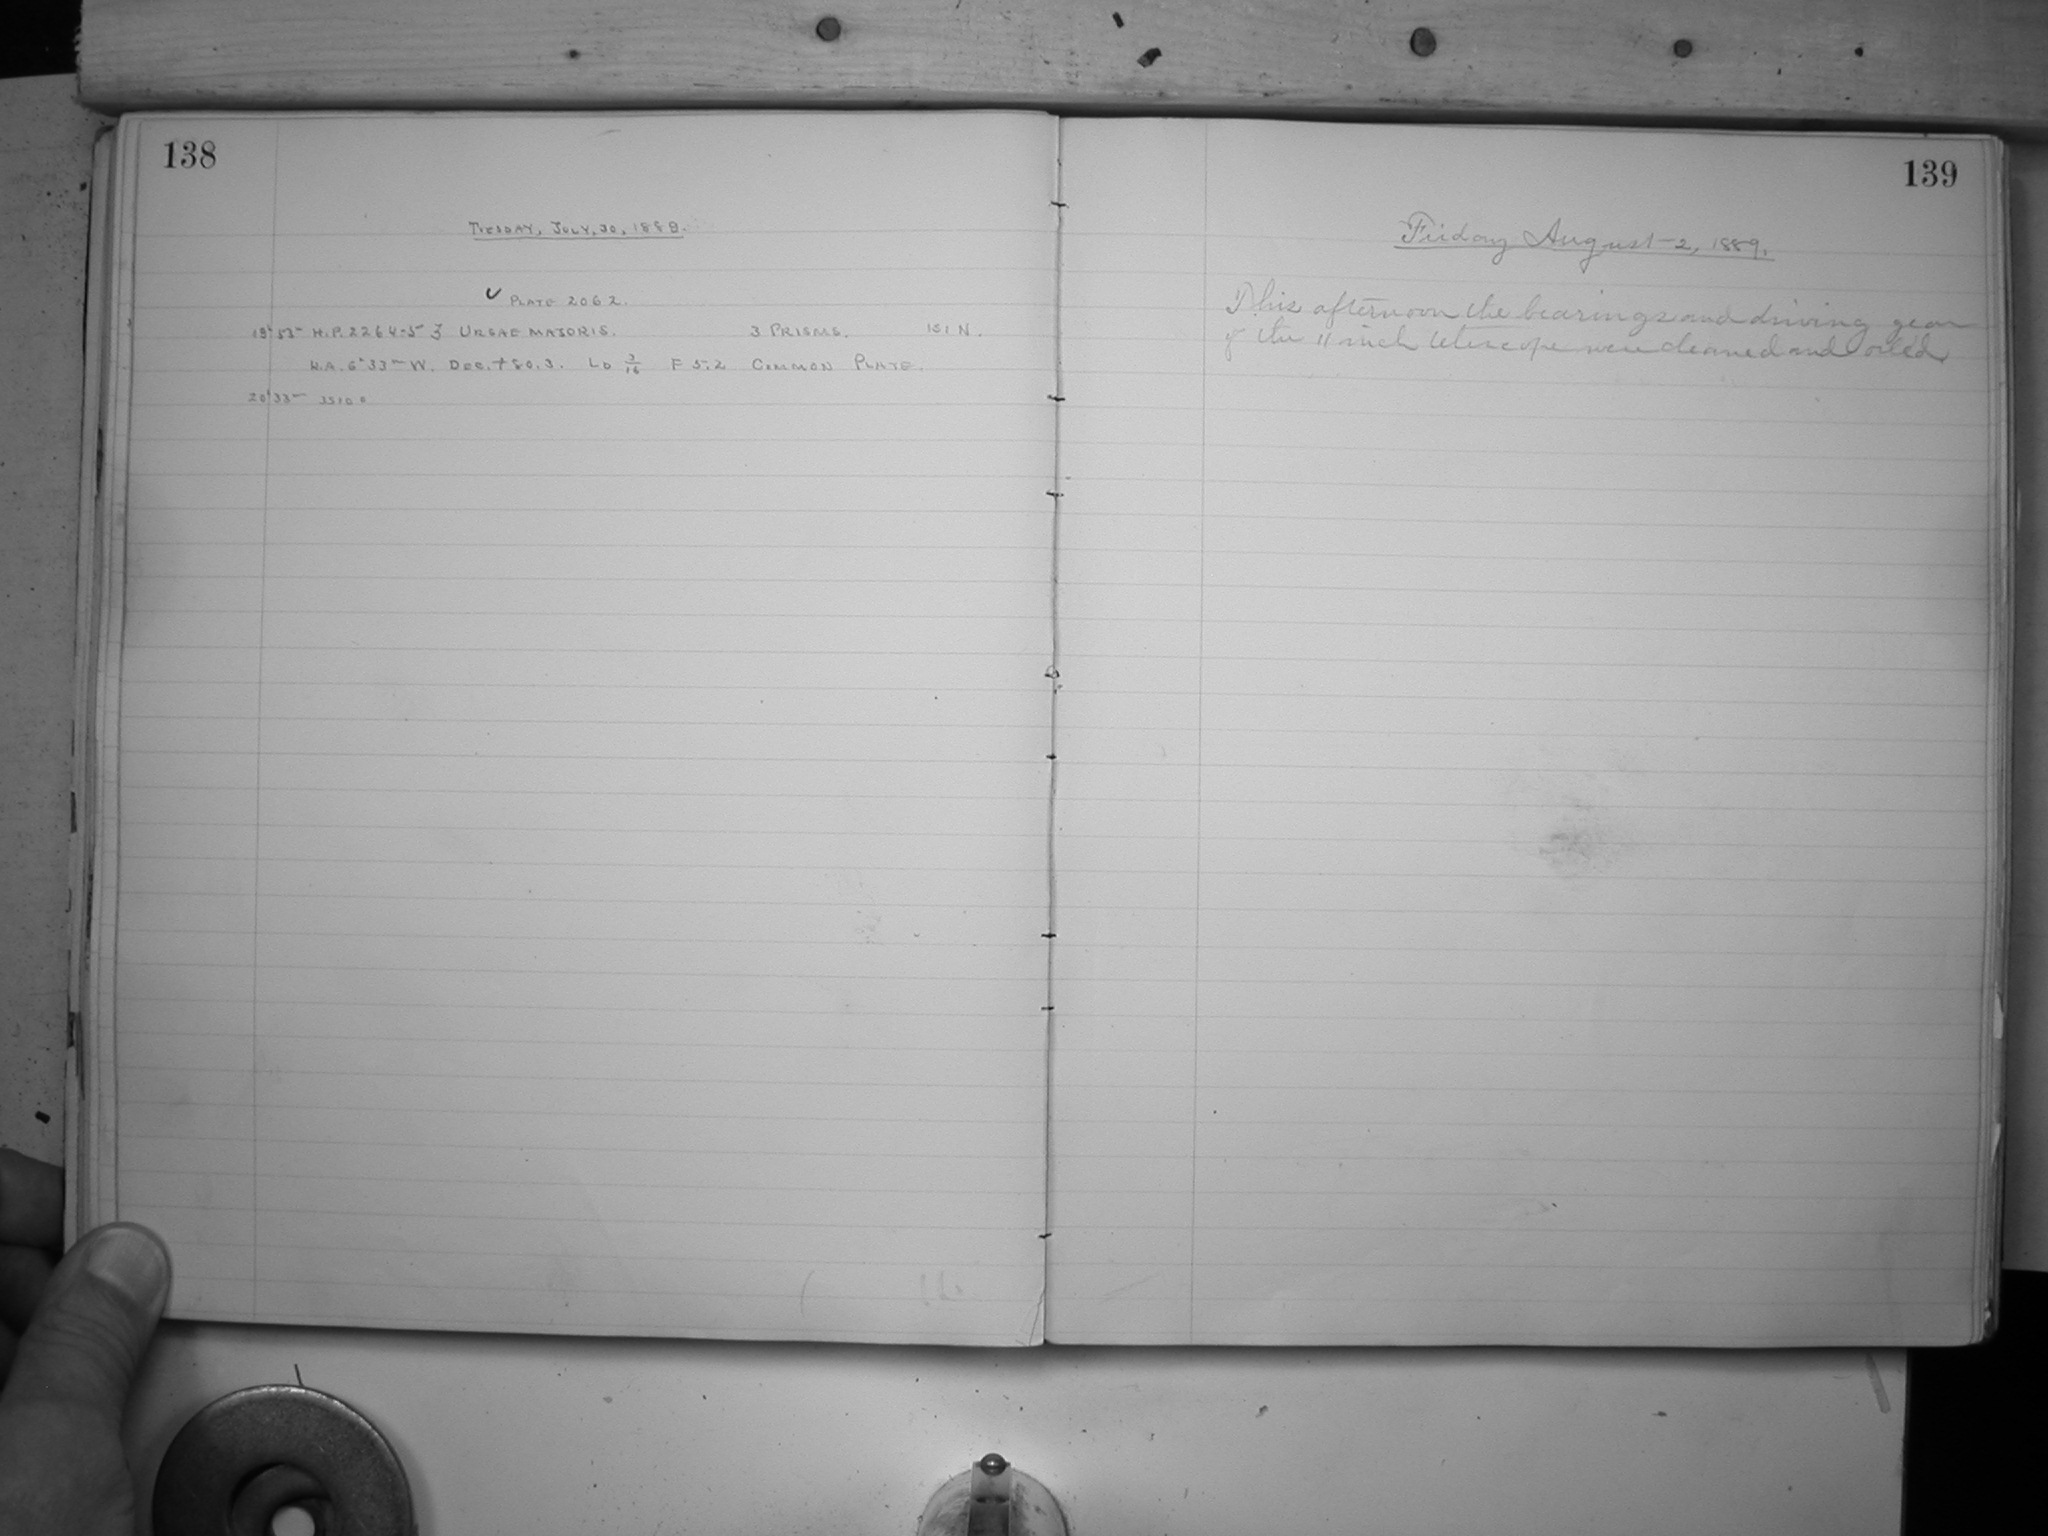 138
TUESDAY, JULY, 30, 1889.
✓ PLATE 2062.
19h 53m H.P. 2264-5 ζ URSAE MAJORIS. 3 PRISMS. 151 N.
H.A. 6h 33m W. DEC. +80.3. LD 3/16 F 5.2 COMMON PLATE.
20h 33m
139
Friday August 2, 1889.
This afternoon the bearings and driving gear
of the 11 inch telescope were cleaned and oiled